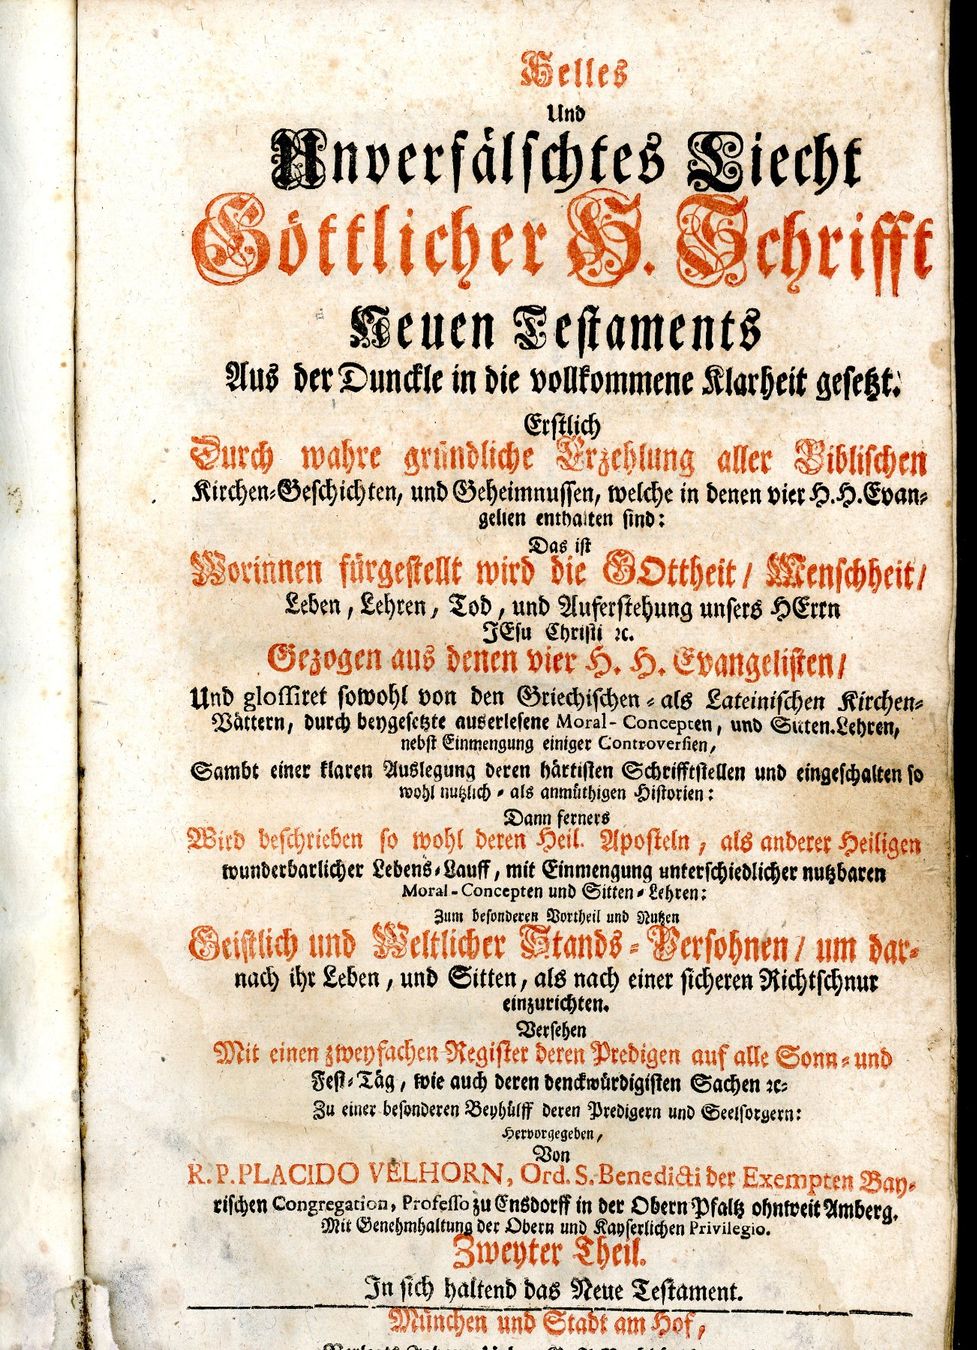 Helles
Und
Unverfälschtes Liecht
Göttlicher H. Schrifft
Neuen Testaments
Aus der Dunckle in die vollkommene Klarheit gesetzt.
Erstlich
Durch wahre gründliche Erzehlung aller Biblischen
Kirchen-Geschichten, und Geheimnussen, welche in denen vier H.H.Evan-
gelien enthalten sind:
Das ist
Worinnen fürgestellt wird die GOttheit/ Menschheit/
Leben, Lehren, Tod, und Auferstehung unsers HErrn
JEsu Christi ꝛc.
Gezogen aus denen vier H. H. Evangelisten/
Und glossiret sowohl von den Griechischen- als Lateinischen Kirchen-
Vättern, durch beygesetzte auserlesene Moral-Concepten, und Sitten-Lehren,
nebst Einmengung einiger Controversien,
Sambt einer klaren Auslegung deren härtisten Schrifftstellen und eingeschalten so
wohl nutzlich- als anmüthigen Historien:
Dann ferners
Wird beschrieben so wohl deren Heil. Aposteln, als anderer Heiligen
wunderbarlicher Lebens-Lauff, mit Einmengung unterschiedlicher nutzbaren
Moral-Concepten und Sitten-Lehren:
Zum besonderen Vortheil und Nutzen
Geistlich und Weltlicher Stands-Persohnen/ um dar-
nach ihr Leben, und Sitten, als nach einer sicheren Richtschnur
einzurichten.
Versehen
Mit einen zweyfachen Register deren Predigen auf alle Sonn- und
Fest-Täg, wie auch deren denckwürdigisten Sachen ꝛc.
Zu einer besonderen Beyhülff deren Predigern und Seelsorgern:
Hervorgegeben,
Von
R. P. PLACIDO VELHORN, Ord. S. Benedicti der Exempten Bay-
rischen Congregation, Professo zu Ensdorff in der Obern Pfaltz ohnweit Amberg.
Mit Genehmhaltung der Obern und Kayserlichen Privilegio.
Zweyter Theil.
In sich haltend das Neue Testament.
München und Stadt am Hof,